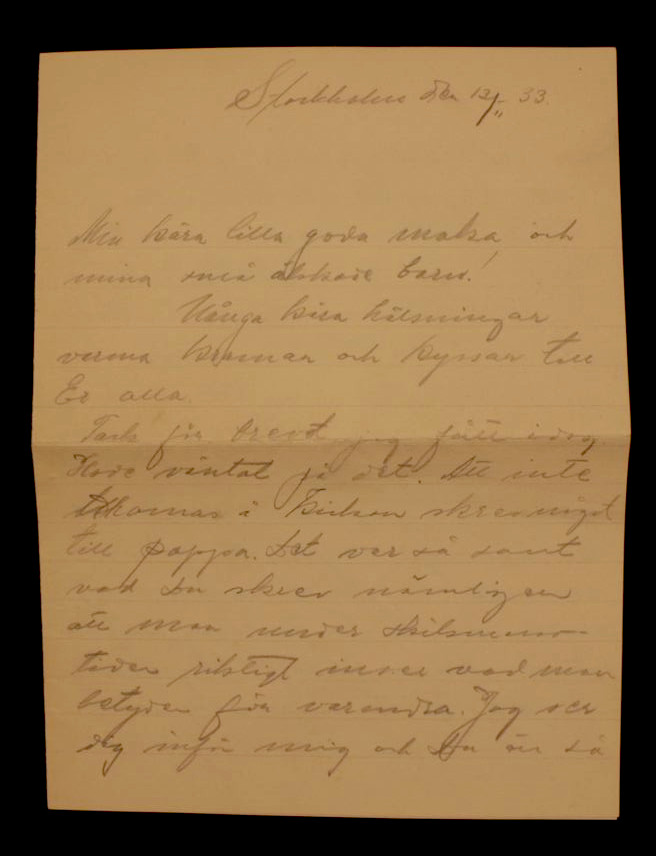 Stockholm den 12/11 33.
Min kära lilla goda maka och
mina små älskade barn!
Många kära hälsningar
varma kramar och kyssar till
Er alla.
Tack för brevet jag fått idag.
Hade väntat på det. Att inte
Thomas å skrev något
till pappa. Det var så sant
vad Du skrev nämligen
att man under skilsmässo-
tiden riktigt inser vad man
betyder för varandra. Jag ser
dig inför mig och Du är så